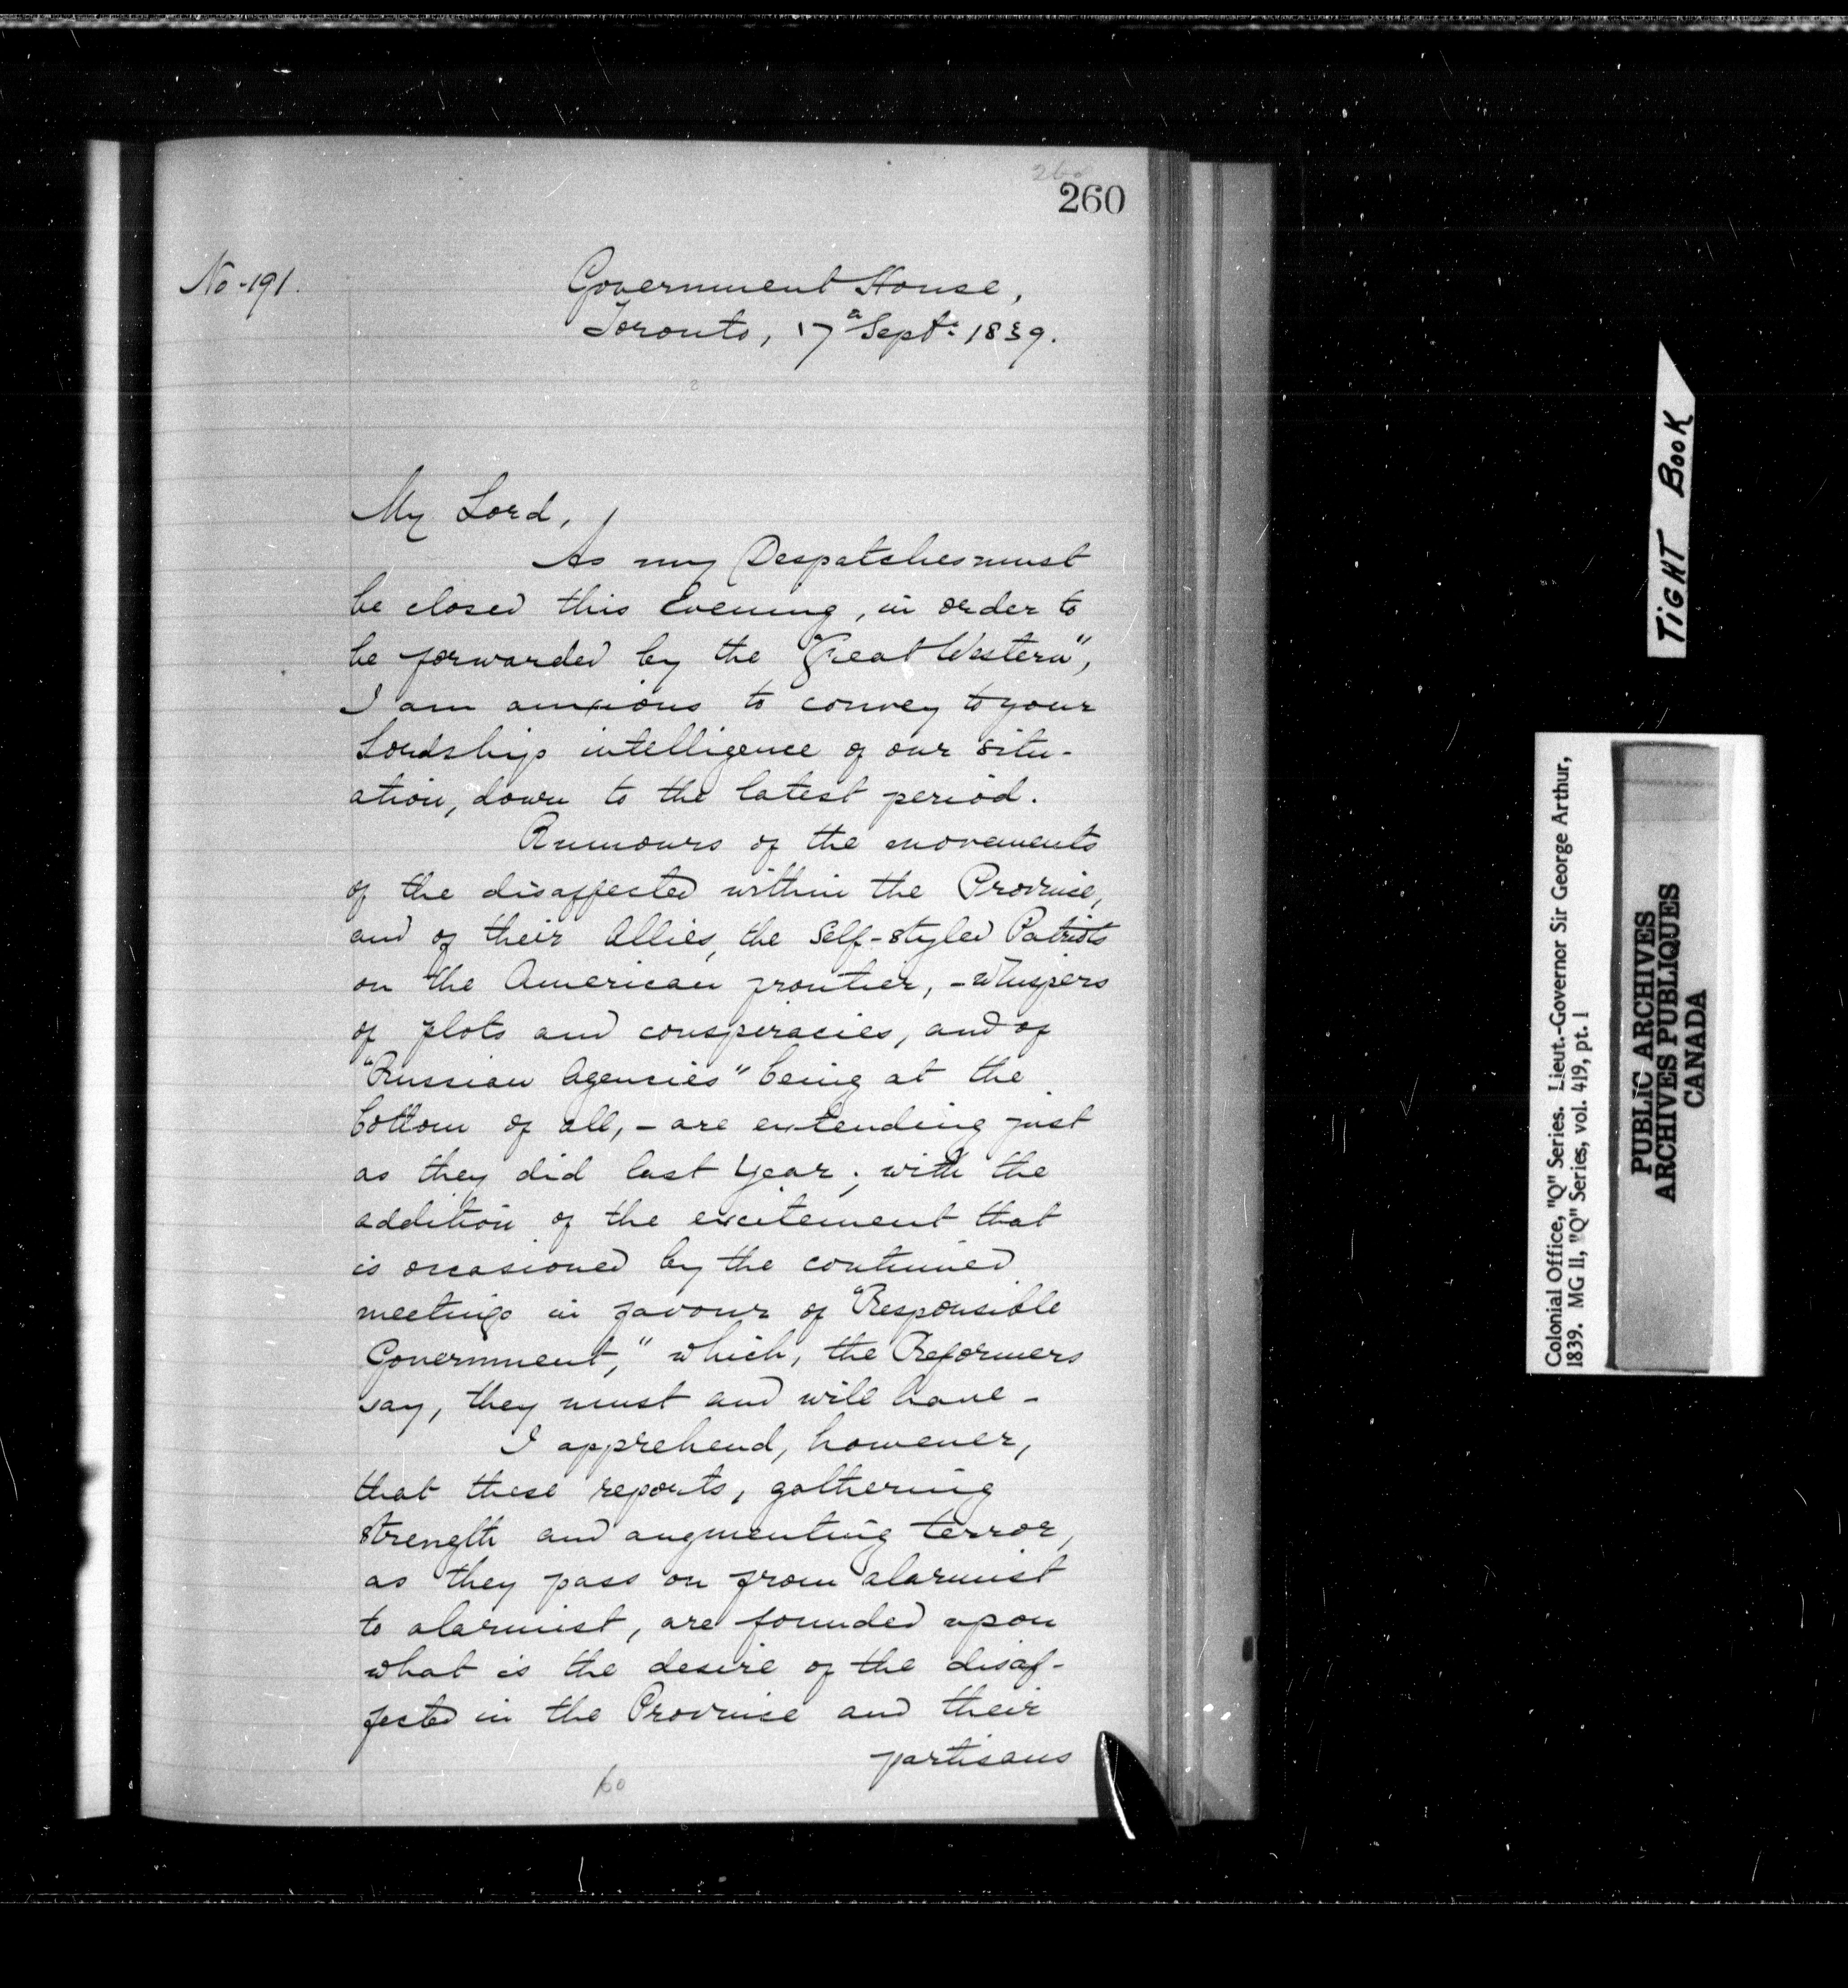 260
260
No. 191.
Government House,
Toronto, 17th Septr 1839.
My Lord,
As my Despatches must
be closed this Evening, in order to
be forwarded by the "Great Western",
I am anxious to convey to your
Lordship intelligence of our situ-
ation, down to the latest period.
Rumours of the movements
of the disaffected within the Province,
and of their Allies, the Self-styled Patriots
on the American frontier, - whispers
of plots and conspiracies, and of
"Russian Agencies" being at the
bottom of all, - are extending just
as they did last Year; with the
addition of the excitement that
is occasioned by the continued
meetings in favour of "Responsible
Government," which, the Reformers
say, they must and will have -
I apprehend, however,
that these reports, gathering
strength and augmenting terror,
as they pass on from alarmist
to alarmist, are founded upon
what is the desire of the disaf-
fected in the Province and their
partisans
60
TIGHT BOOK
Colonial Office, "Q" Series. Lieut.-Governor Sir George Arthur,
1839. MG 11, "Q" Series, vol. 419, pt. 1
PUBLIC ARCHIVES
ARCHIVES PUBLIQUES
CANADA